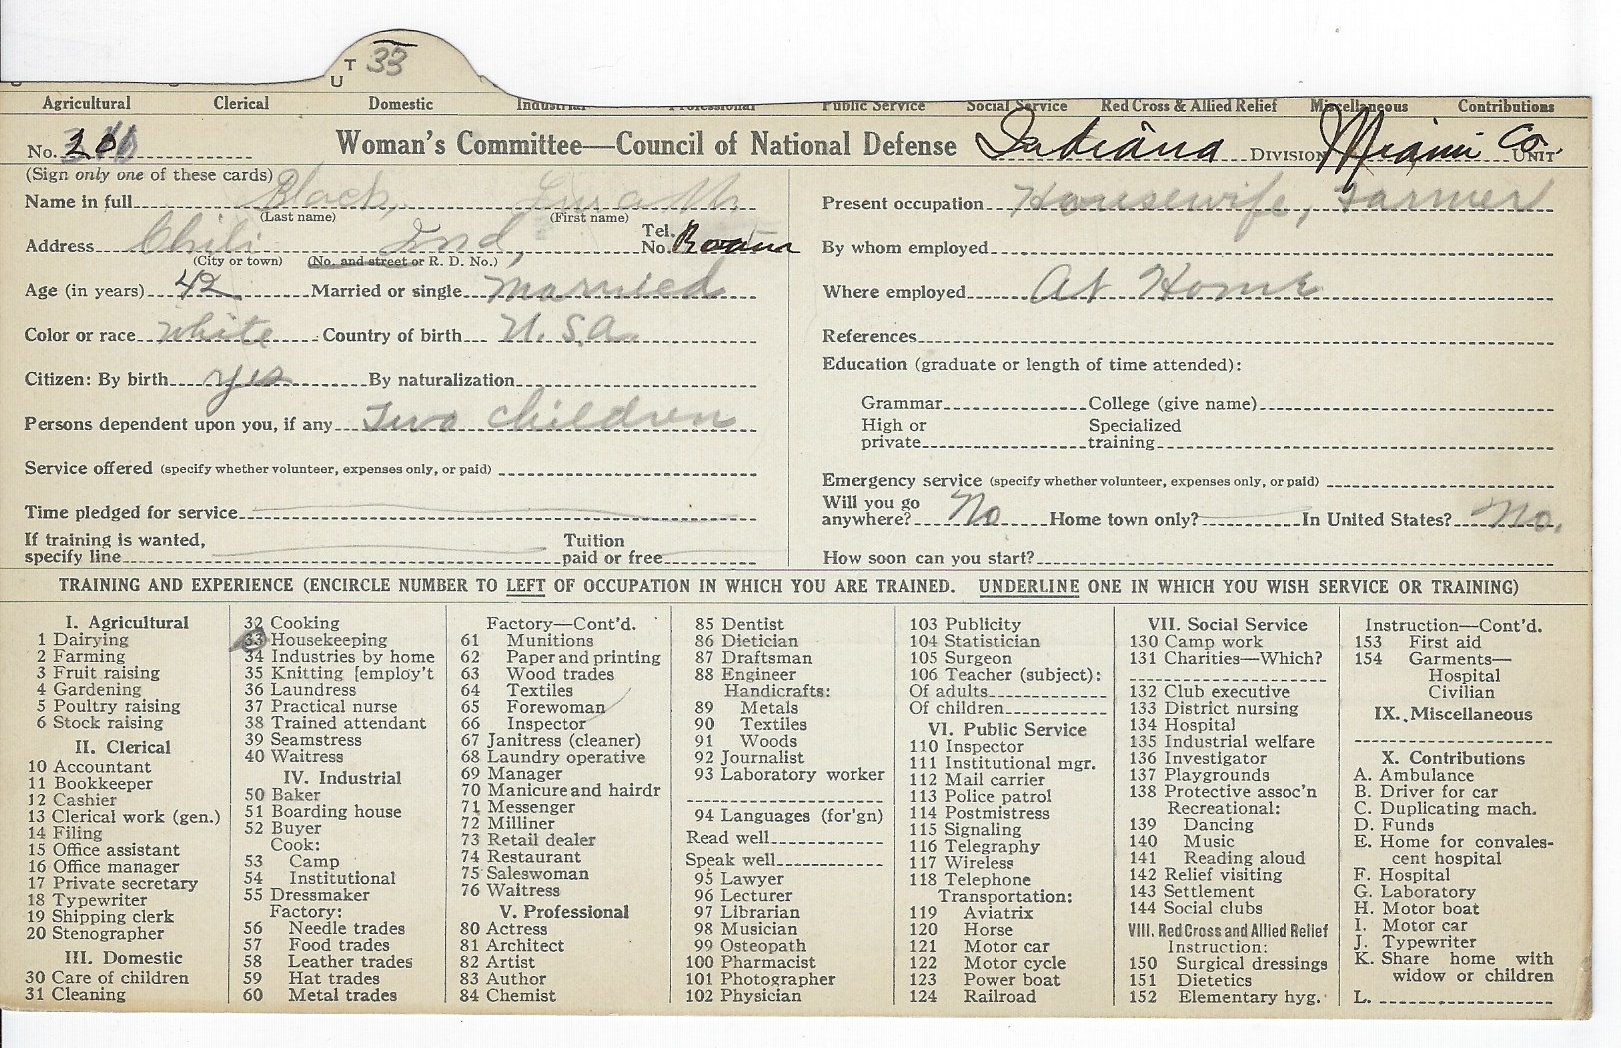 T 33
U
Agricultural Clerical Domestic Industrial Professional Public Service Social Service Red Cross & Allied Relief Miscellaneous Contributions
No. Woman's Committee—Council of National Defense Indiana DIVISION Miami Co. UNIT
(Sign only one of these cards)
Name in full Black,
(Last name) (First name)
Address Chili Ind, Tel. No. Roann
(City or town) (No. and street or R. D. No.)
Age (in years) 42 Married or single Married
Color or race White Country of birth U.S.A.
Citizen: By birth yes By naturalization
Persons dependent upon you, if any Two children
Service offered (specify whether volunteer, expenses only, or paid)
Time pledged for service
If training is wanted, specify line Tuition paid or free
Present occupation Housewife, Farmer
By whom employed
Where employed At Home
References
Education (graduate or length of time attended):
Grammar College (give name)
High or private Specialized training
Emergency service (specify whether volunteer, expenses only, or paid)
Will you go anywhere? No Home town only? In United States? No.
How soon can you start?
TRAINING AND EXPERIENCE (ENCIRCLE NUMBER TO LEFT OF OCCUPATION IN WHICH YOU ARE TRAINED. UNDERLINE ONE IN WHICH YOU WISH SERVICE OR TRAINING)
I. Agricultural
1 Dairying
2 Farming
3 Fruit raising
4 Gardening
5 Poultry raising
6 Stock raising
II. Clerical
10 Accountant
11 Bookkeeper
12 Cashier
13 Clerical work (gen.)
14 Filing
15 Office assistant
16 Office manager
17 Private secretary
18 Typewriter
19 Shipping clerk
20 Stenographer
III. Domestic
30 Care of children
31 Cleaning
32 Cooking
33 Housekeeping
34 Industries by home
35 Knitting [employ't
36 Laundress
37 Practical nurse
38 Trained attendant
39 Seamstress
40 Waitress
IV. Industrial
50 Baker
51 Boarding house
52 Buyer
Cook:
53 Camp
54 Institutional
55 Dressmaker
Factory:
56 Needle trades
57 Food trades
58 Leather trades
59 Hat trades
60 Metal trades
Factory—Cont'd.
61 Munitions
62 Paper and printing
63 Wood trades
64 Textiles
65 Forewoman
66 Inspector
67 Janitress (cleaner)
68 Laundry operative
69 Manager
70 Manicure and hairdr
71 Messenger
72 Milliner
73 Retail dealer
74 Restaurant
75 Saleswoman
76 Waitress
V. Professional
80 Actress
81 Architect
82 Artist
83 Author
84 Chemist
85 Dentist
86 Dietician
87 Draftsman
88 Engineer
Handicrafts:
89 Metals
90 Textiles
91 Woods
92 Journalist
93 Laboratory worker
94 Languages (for'gn)
Read well
Speak well
95 Lawyer
96 Lecturer
97 Librarian
98 Musician
99 Osteopath
100 Pharmacist
101 Photographer
102 Physician
103 Publicity
104 Statistician
105 Surgeon
106 Teacher (subject):
Of adults
Of children
VI. Public Service
110 Inspector
111 Institutional mgr.
112 Mail carrier
113 Police patrol
114 Postmistress
115 Signaling
116 Telegraphy
117 Wireless
118 Telephone
Transportation:
119 Aviatrix
120 Horse
121 Motor car
122 Motor cycle
123 Power boat
124 Railroad
VII. Social Service
130 Camp work
131 Charities—Which?
132 Club executive
133 District nursing
134 Hospital
135 Industrial welfare
136 Investigator
137 Playgrounds
138 Protective assoc'n
Recreational:
139 Dancing
140 Music
141 Reading aloud
142 Relief visiting
143 Settlement
144 Social clubs
VIII. Red Cross and Allied Relief
Instruction:
150 Surgical dressings
151 Dietetics
152 Elementary hyg.
Instruction—Cont'd.
153 First aid
154 Garments—
Hospital
Civilian
IX. Miscellaneous
X. Contributions
A. Ambulance
B. Driver for car
C. Duplicating mach.
D. Funds
E. Home for convales-
cent hospital
F. Hospital
G. Laboratory
H. Motor boat
I. Motor car
J. Typewriter
K. Share home with
widow or children
L.